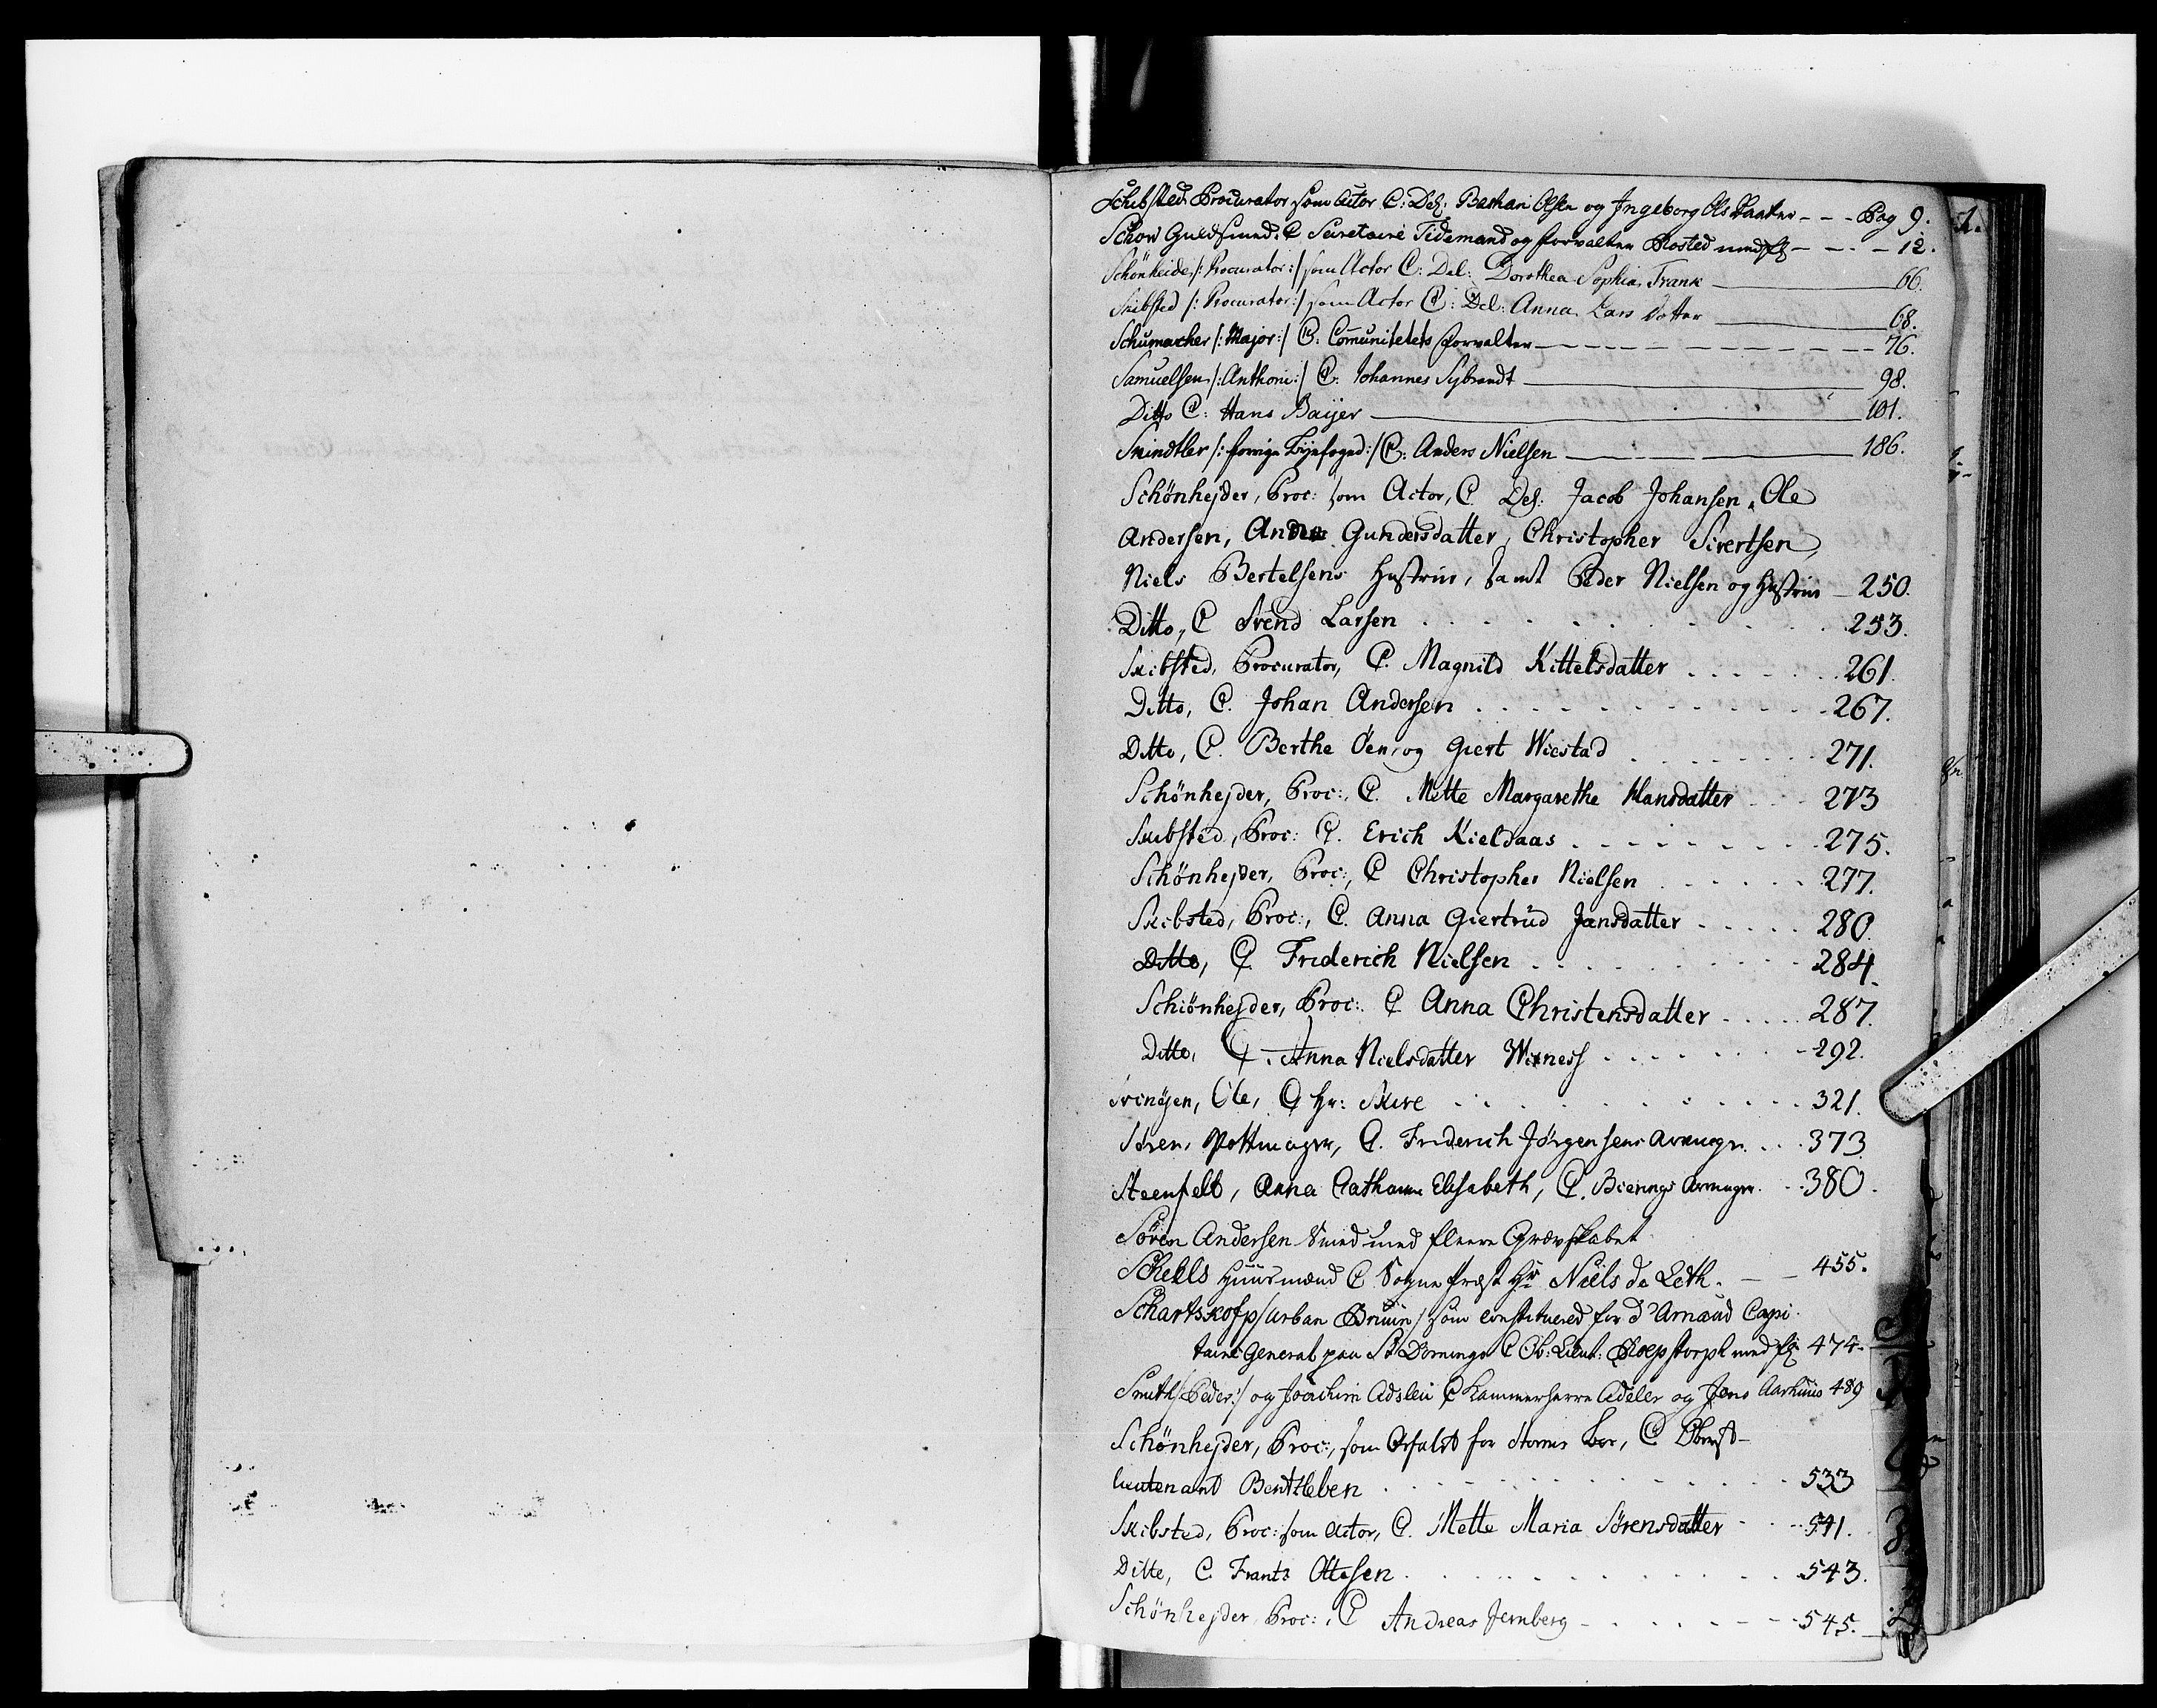 Schibsted Procurator som Actor C: Del: Olsen og Ingeborg Ols Daatter - - - Pag 9.
Schow Guldsmed. C Secretaire Tidemand og forvalter Rosted med fl - - - - 12.
Schönheide /: Procurator :/ som Actor C: Del: Dorothea Sophia Frank 66.
Skibsted /: Procurator :/ som Actor C: Del: Anna Lars Dotter 68.
Schumacher /: Major :/ C: Com̄unitetets forvalter 76.
Samuelsen /: Anthoni :/ C. Johannes Sybrandt 98.
Ditto C: Hans Baÿer 101.
Snindtler /: forrige Bÿefoged :/ C: Anders Nielsen 186.
Schönhejder, Proc: som Actor, C Del: Jacob Johansen, Ole
Andersen, Gundersdatter, Christopher Sivertsen,
Niels Bertelsens Hustrue, samt Peder Nielsen og Hustrue 250.
Ditto, C Svend Larsen 253.
Skibsted, Procurator, C. Magnild Kittelsdatter 261.
Ditto, C. Johan Andersen 267.
Ditto, C. Berthe Öen, og Giert Wiestad 271.
Schönhejder, Proc:, C. Mette Margarethe Hansdatter 273
Skibsted, Proc: C. Erich Kieldaas 275.
Schönhejder, Proc:, C Christopher Nielsen 277.
Skibsted, Proc:, C. Anna Giertrud Jansdatter 280.
Ditto, C. Friderich Nielsen 284.
Schiönhejder, Proc: C Anna Christensdatter 287.
Ditto, C. Anna Nielsdatter 292.
Ole, C Hr: Skire 321.
Sören Pottmager, C. Friderich Jörgensens Arvinger 373.
Steenfelt, Anna Cathar. Elisabeth, C. Bierings Arvinger 380.
Sören Andersen Smed med fleere Grevskabet
Schells Huusmænd C Sogne Præst Hr Niels de Leth. 455.
Schartskopf /Urban Bruun/ som Constituered for d'Arnaud Capi-
taine General paa St Domingo C Ob: Lieut: Roepstorph med fl 474.
Smith /Peder:/ og Joachim Adsleu C Kammerherre Adeler og Jens Aarhuus 489
Schönhejder, Proc:, som befalet for Bor, C Oberst-
lieutenant Bentzleben 533
Skibsted, Proc: som Actor, C. Mette Maria Sörensdatter 541.
Ditto, C. Frantz Ottesen 543.
Schönhejder, Proc:, C Andreas Jernberg 545.